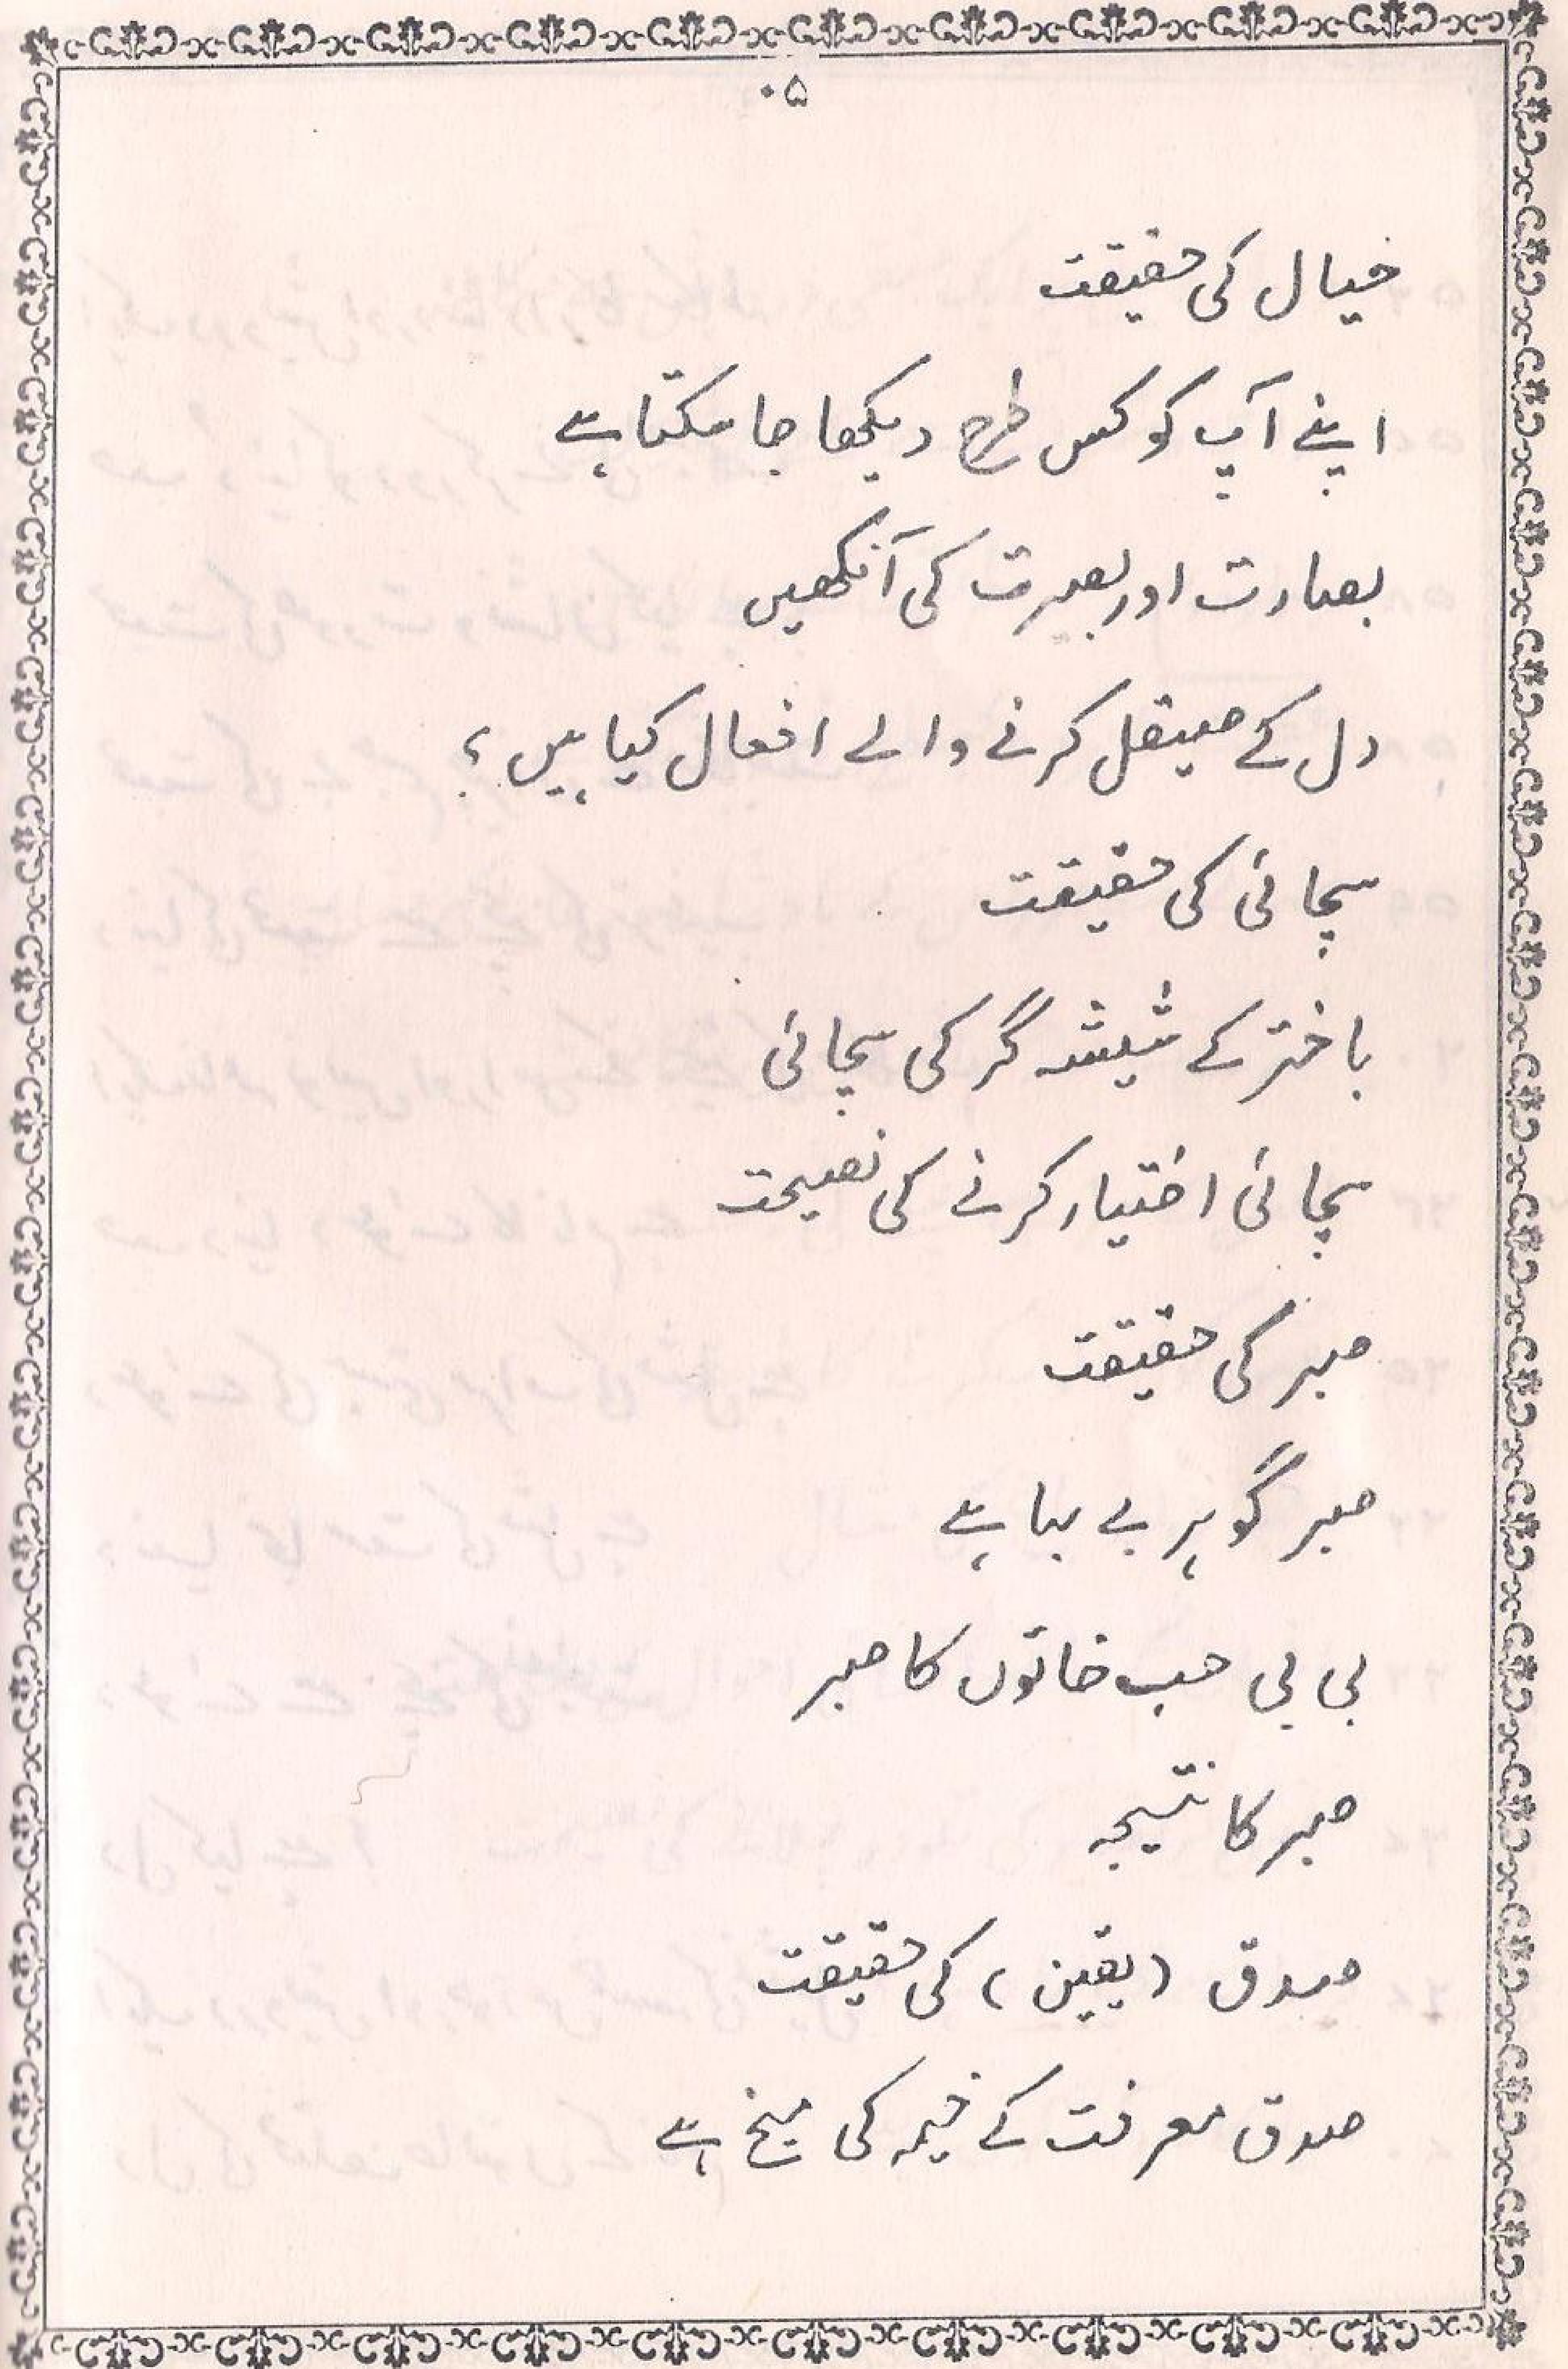 ۰۵
خیال کی حقیقت
اپنے آپ کو کس طرح دیکھا جا سکتا ہے
بصارت اور بصیرت کی آنکھیں
دل کے صیقل کرنے والے افعال کیا ہیں ؟
سچائی کی حقیقت
باختر کے شیشہ گر کی سچائی
سچائی اختیار کرنے کی نصیحت
صبر کی حقیقت
صبر گوہر بے بہا ہے
بی بی حب خاتون کا صبر
صبر کا نتیجہ
صدق (یقین) کی حقیقت
صدق معرفت کے خیمہ کی میخ ہے